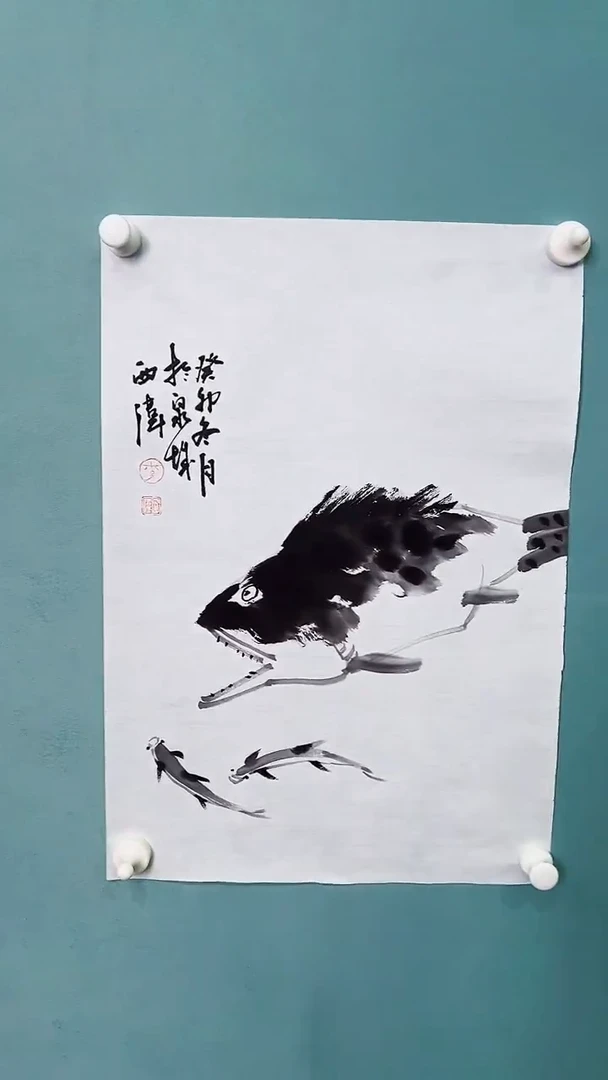 癸卯冬月
於泉城
西偉